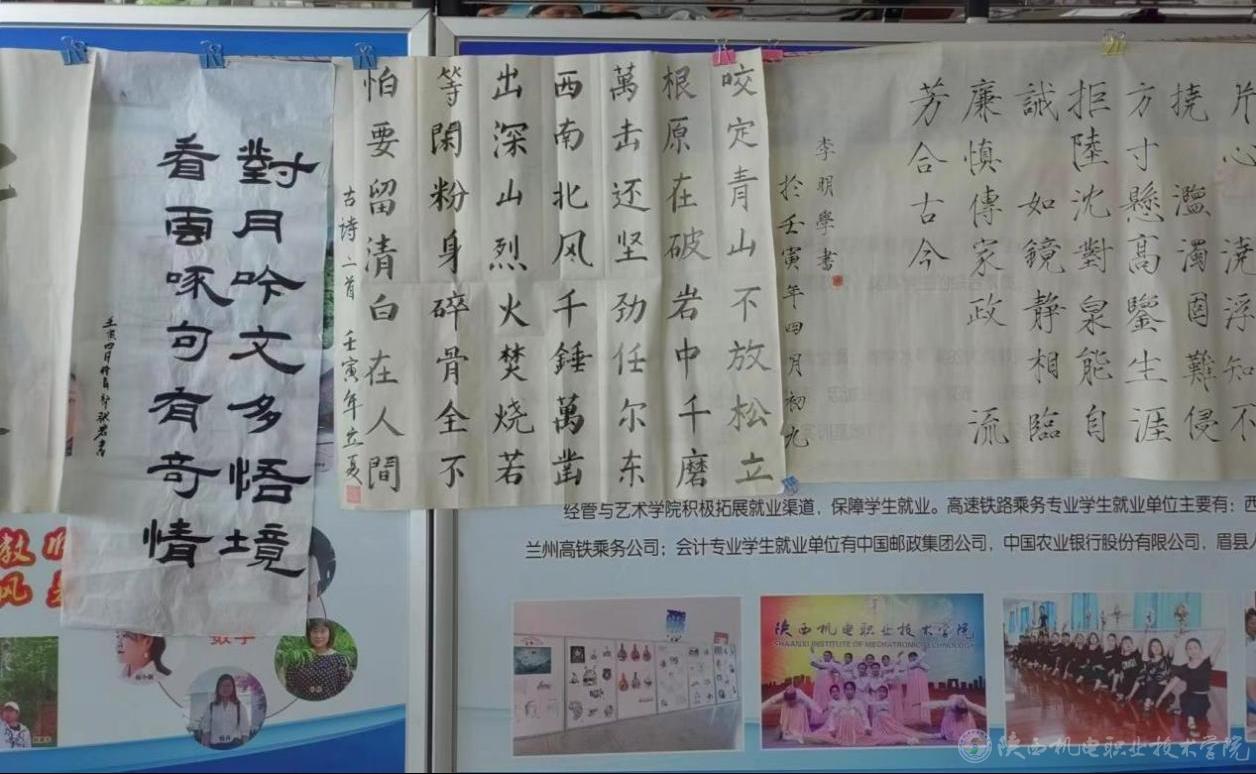 片心 澆浮知不
撓 濫濁固難侵
方寸懸高鑒生涯
拒陸沈對泉能自
誡 如鏡靜相臨
廉慎傳家政 流
芳合古今
李明學書
於壬寅年四月初九
咬定青山不放松立
根原在破岩中千磨
萬击还坚劲任尔东
西南北风千錘萬凿
出深山烈火焚烧若
等閑粉身碎骨全不
怕要留清白在人間
古诗二首 壬寅年立夏
對月吟文多悟境
看雲啄句有奇情
壬寅四月
经管与艺术学院积极拓展就业渠道，保障学生就业。高速铁路乘务专业学生就业单位主要有：西
兰州高铁乘务公司；会计专业学生就业单位有中国邮政集团公司，中国农业银行股份有限公司，眉县
陕西机电职业技术学院
SHAANXI INSTITUTE OF MECHATRONIC TECHNOLOGY
数学
陕西机电职业技术学院